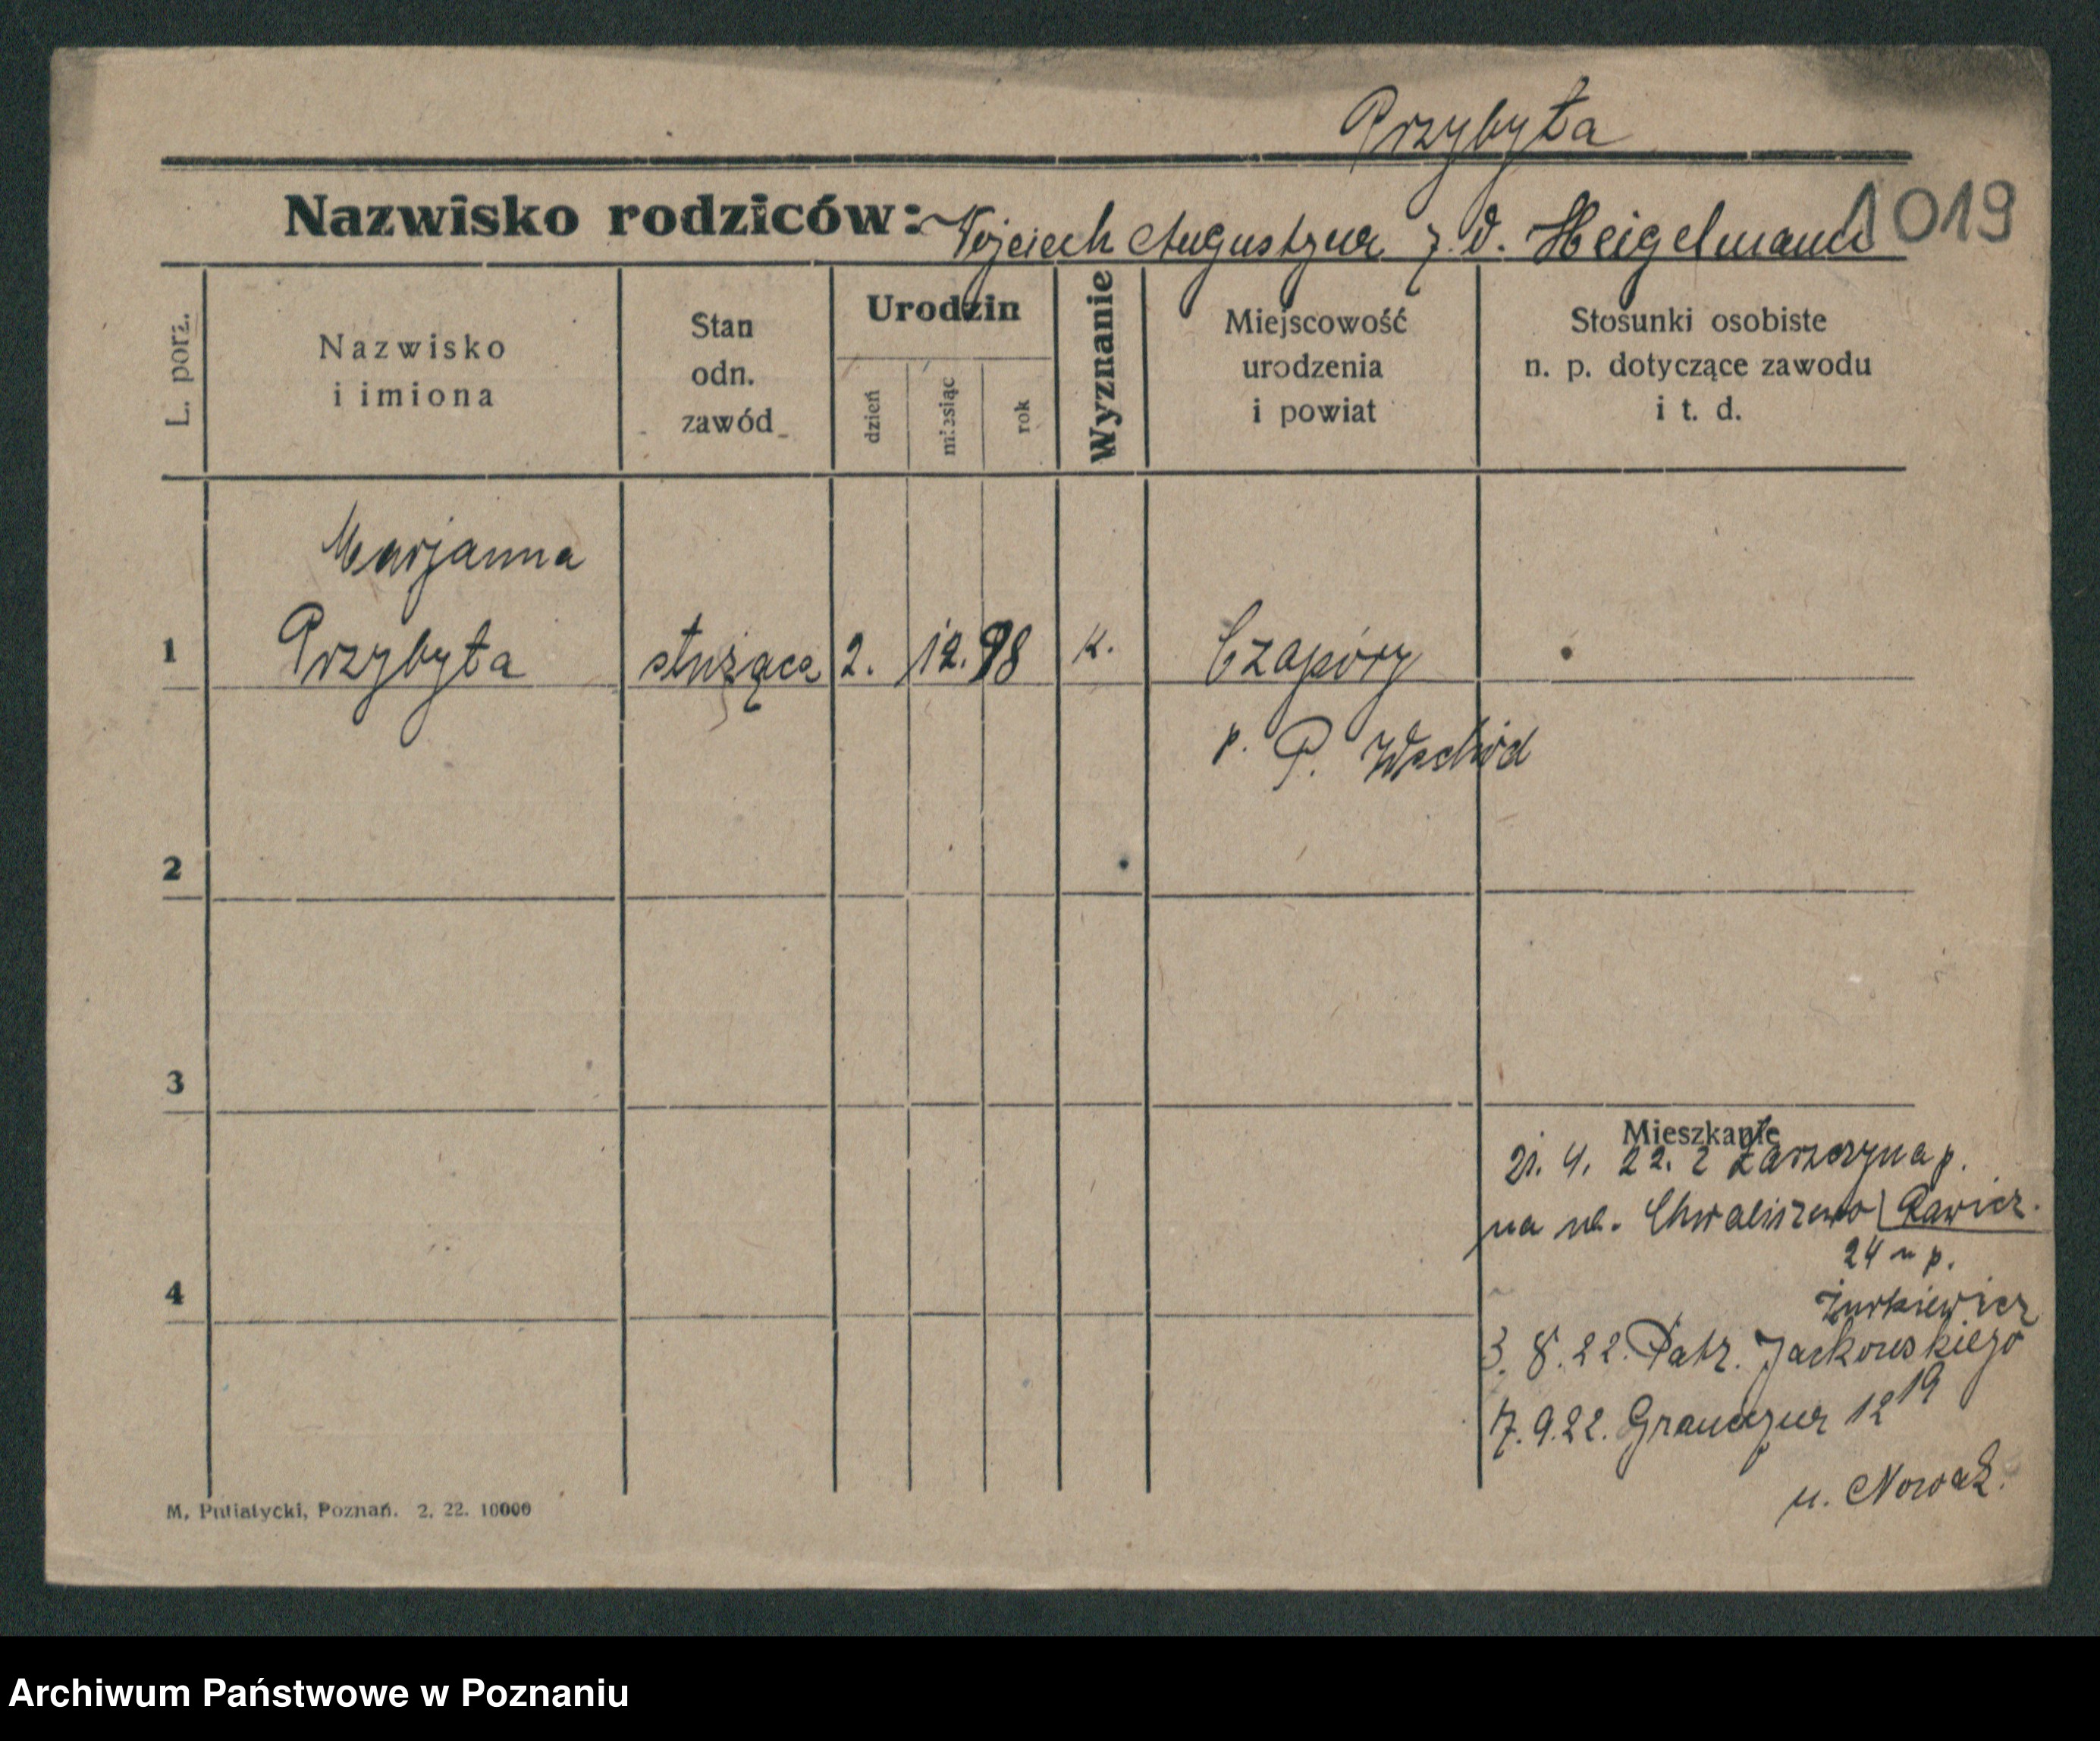 Przybyła
Nazwisko rodziców: Wojciech Augustyna z. d. Heigelmann 1019
L. porz.
Nazwisko
i imiona
Stan
odn.
zawód
Urodzin
dzień
miesiąc
rok
Wyznanie
Miejscowość
urodzenia
i powiat
Stosunki osobiste
n. p. dotyczące zawodu
i t. d.
Marjanna
1 Przybyła służąca 2. 12. 98 k. Czapóry
p. P. Wschód
2
3
Mieszkanie
21. 4. 22. z p.
na ul. Chwaliszewo Rawicz.
24 p.
4
Żurkiewicz
3. 8. 22. Patr. Jackowskiego
7. 9. 22. 12 19
u. Nowak.
M. Putiatycki, Poznań. 2. 22. 10000
Archiwum Państwowe w Poznaniu